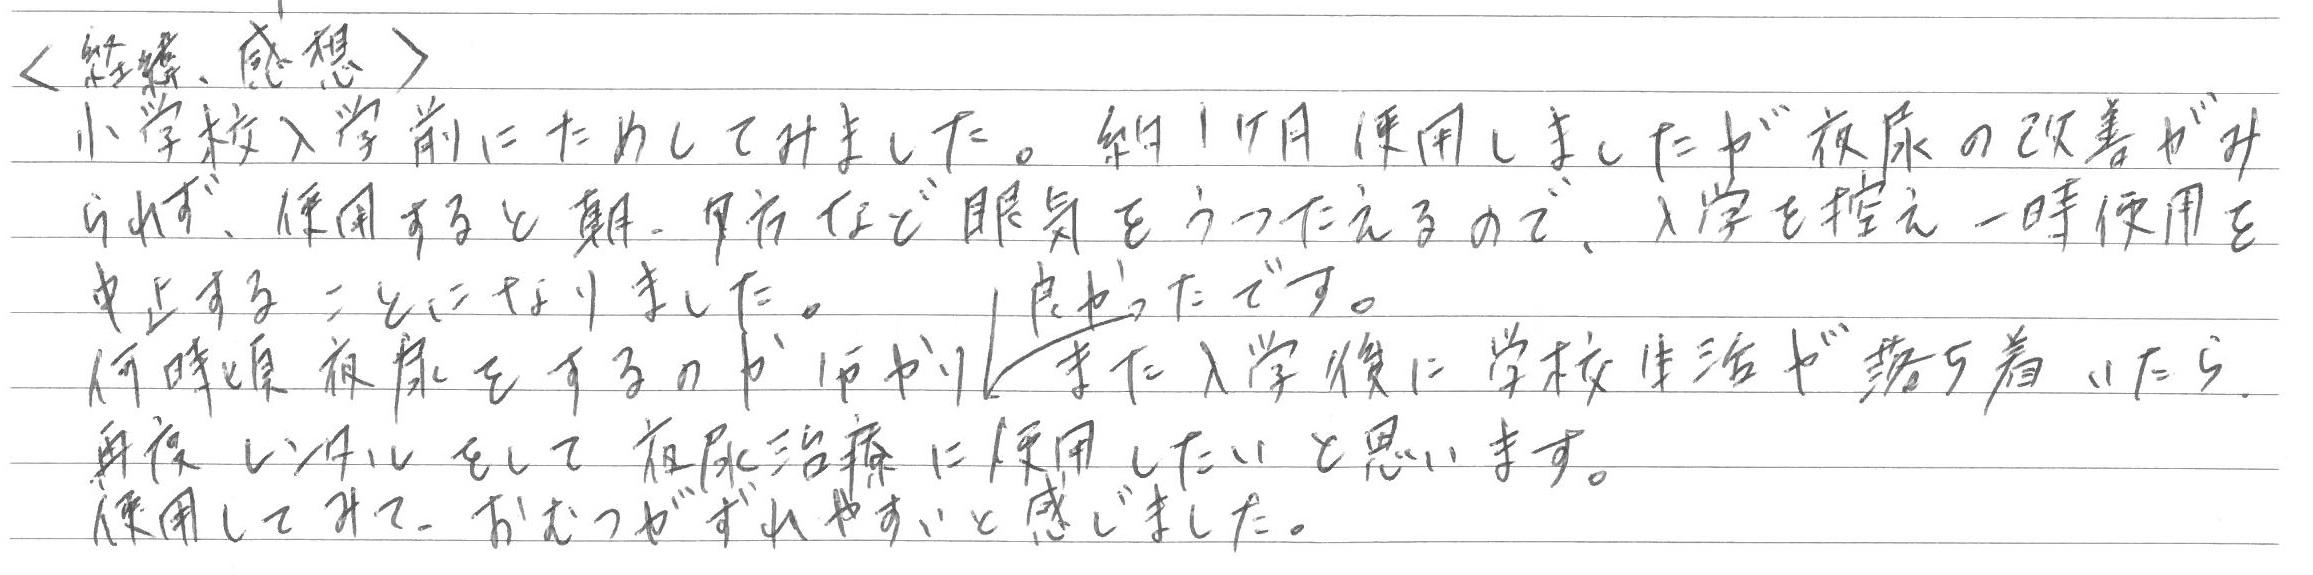 <経緯、感想>
小学校入学前にためしてみました。約1ケ月使用しましたが夜尿の改善がみ
られず、使用すると朝、夕方など眠気をうったえるので、入学を控え一時使用を
中止することになりました。
良かったです。
何時頃夜尿をするのか分かり また入学後に学校生活が落ち着いたら、
再度レンタルをして夜尿治療に使用したいと思います。
使用してみて、おむつがずれやすいと感じました。